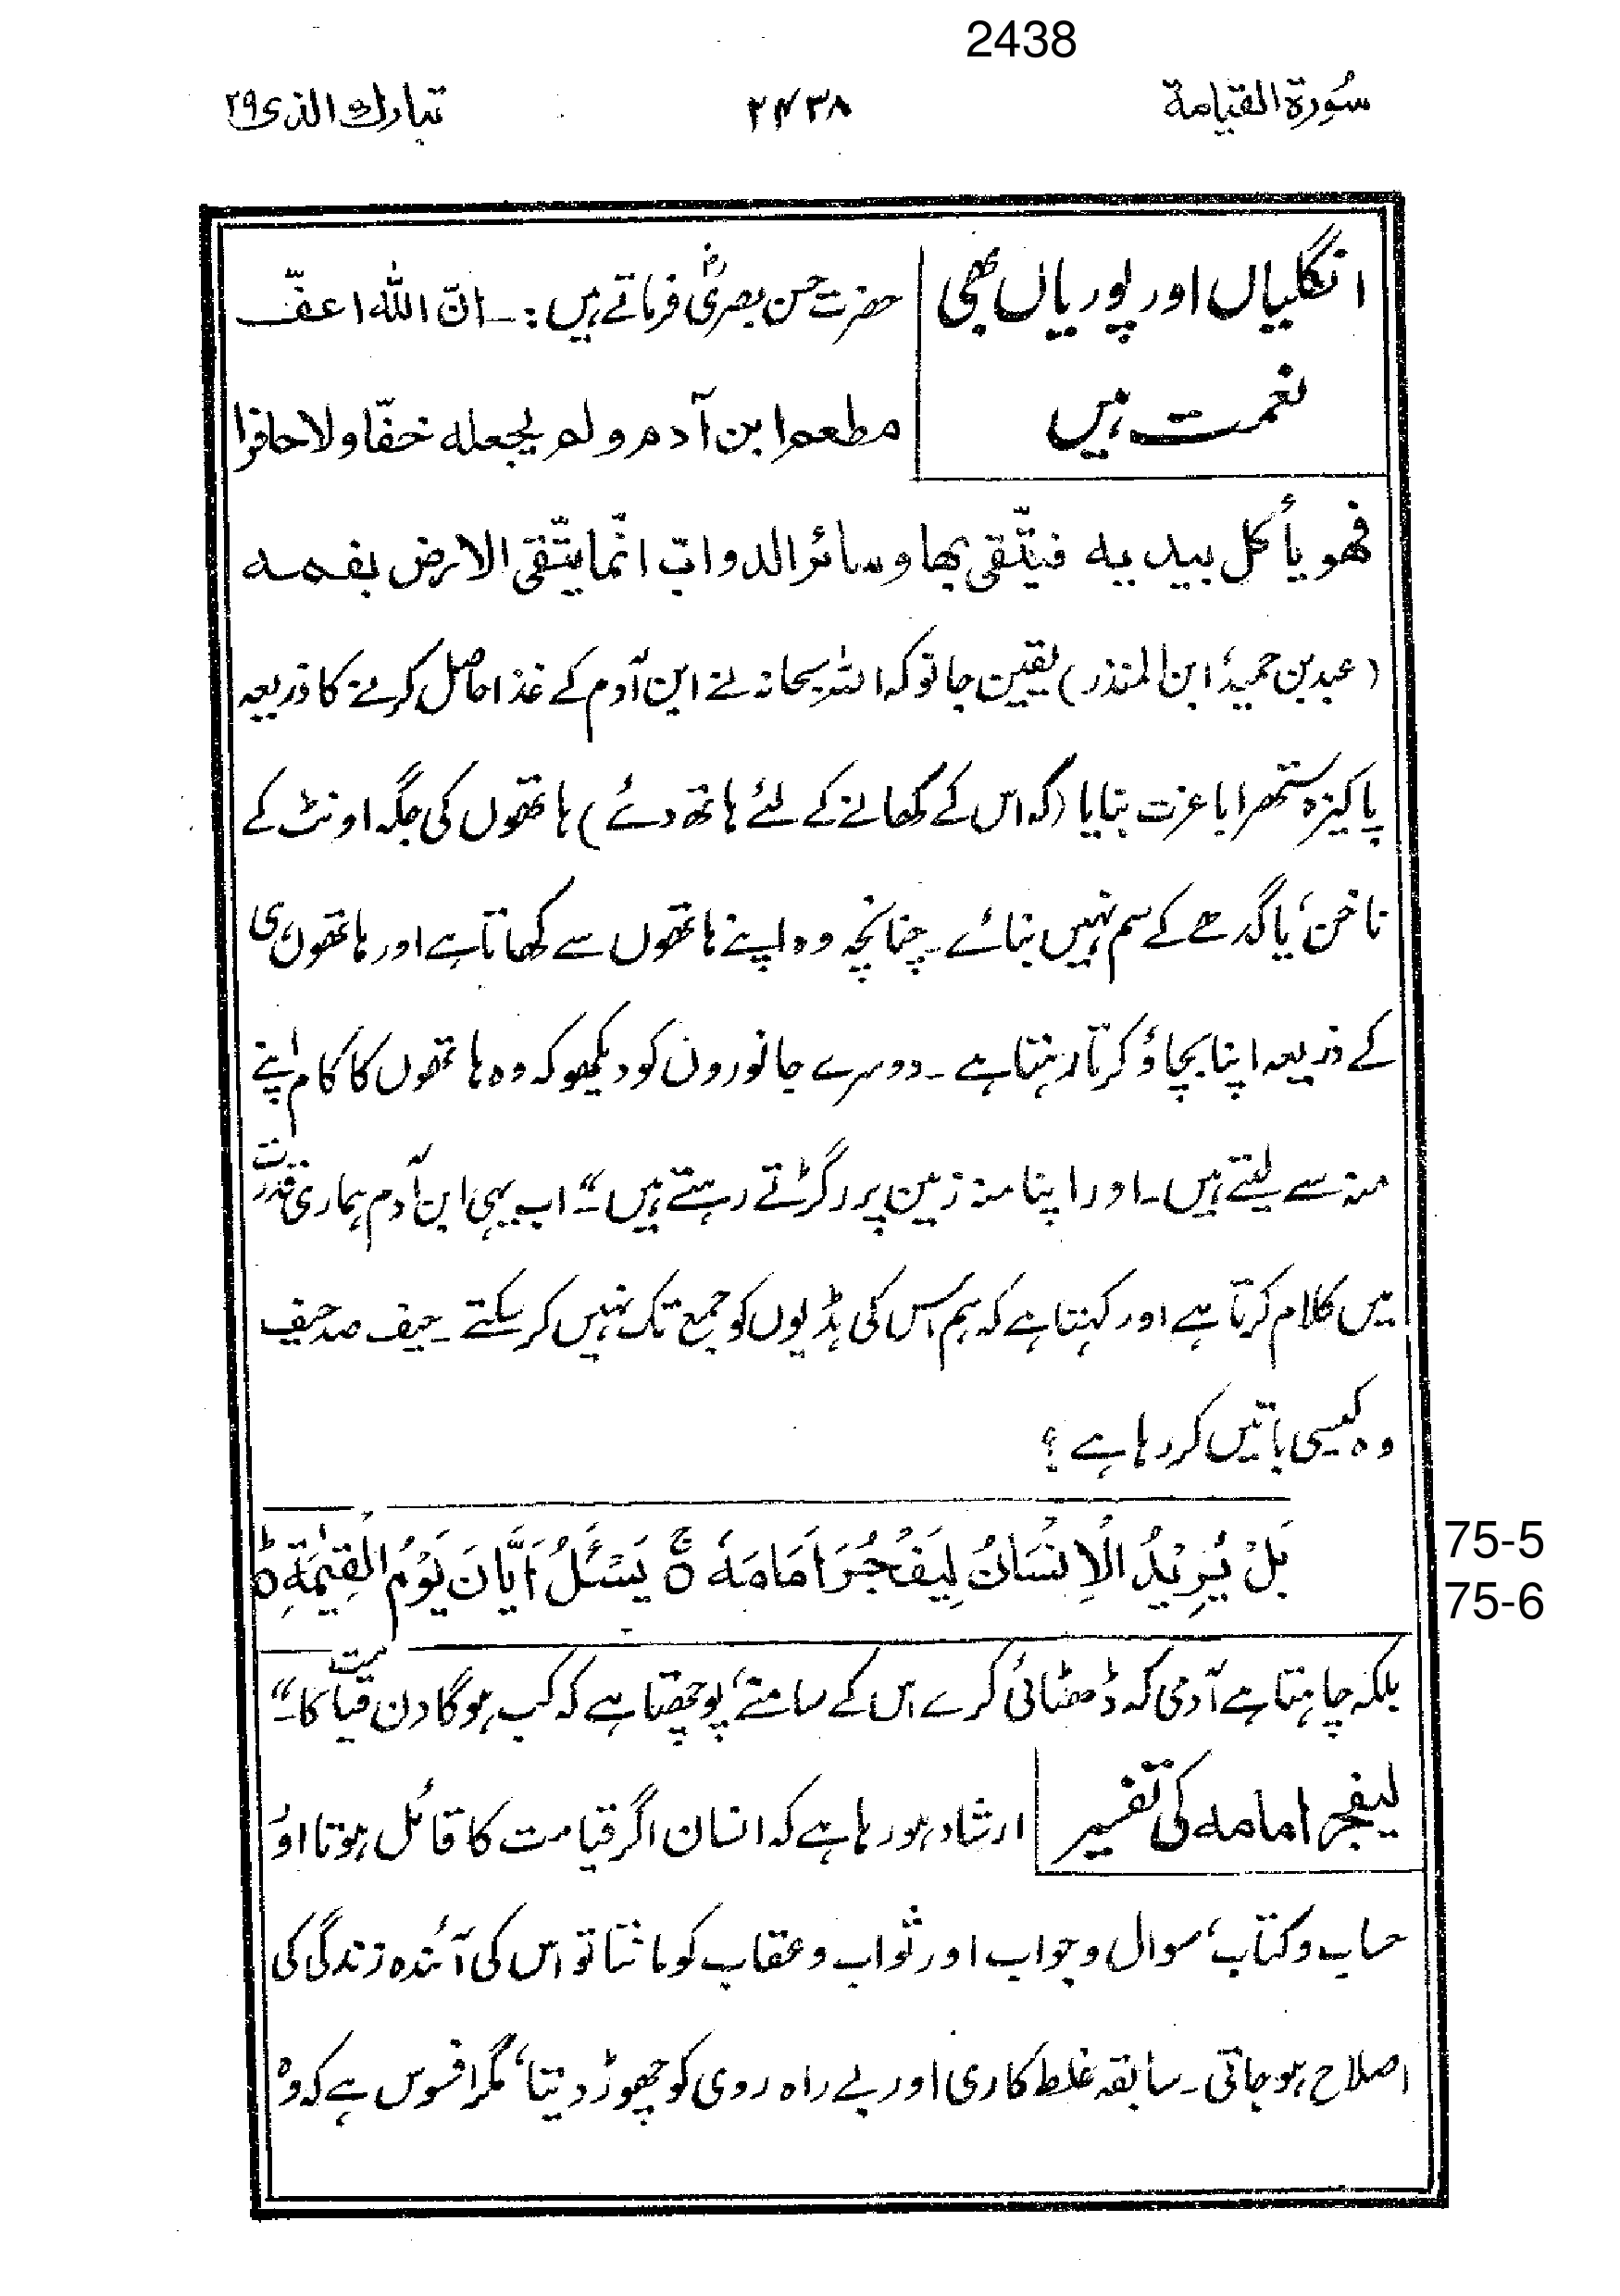 2438
سُورة القيامة ۲۴۳۸ تبارك الذى ۲۹
انگلیاں اور پوریاں بھی
نعمت ہیں
حضرت حسن بصریؒ فرماتے ہیں :۔ انّ اللّٰہ اعفّ
مطعم ابن آدم ولم یجعلہ خفّا ولا حافرا
فھو یأکل بیدیہ فیتّقی بھا وسائر الدوابّ انّما یتّقی الارض بفمہ
(عبد بن حمید، ابن المنذر) یقین جانو کہ اللہ سبحانہ نے ابن آدم کے غذا حاصل کرنے کا ذریعہ
پاکیزہ ستھرا باعزت بنایا (کہ اس کے کھانے کے لئے ہاتھ دئے) ہاتھوں کی جگہ اونٹ کے
ناخن، یا گدھے کے سم نہیں بنائے۔ چنانچہ وہ اپنے ہاتھوں سے کھاتا ہے اور ہاتھوں ہی
کے ذریعہ اپنا بچاؤ کرتا رہتا ہے۔ دوسرے جانوروں کو دیکھو کہ وہ ہاتھوں کا کام اپنے
منہ سے لیتے ہیں۔ اور اپنا منہ زمین پر رگڑتے رہتے ہیں۔“ اب یہی ابن آدم ہماری قدرت
میں کلام کرتا ہے اور کہتا ہے کہ ہم اس کی ہڈیوں کو جمع تک نہیں کر سکتے۔ حیف صد حیف
وہ کیسی باتیں کر رہا ہے ؟
بَلْ يُرِيْدُ الْاِنْسَانُ لِيَفْجُرَ اَمَامَهٗ ۝ يَسْئَلُ اَيَّانَ يَوْمُ الْقِيٰمَةِ ۝
75-5
75-6
بلکہ چاہتا ہے آدمی کہ ڈھٹائی کرے اس کے سامنے، پوچھتا ہے کہ کب ہوگا دن قیامت کا۔“
لیفجر امامہ کی تفسیر
ارشاد ہو رہا ہے کہ انسان اگر قیامت کا قائل ہوتا اور
حساب و کتاب، سوال و جواب اور ثواب و عقاب کو مانتا تو اس کی آئندہ زندگی کی
اصلاح ہو جاتی۔ سابقہ غلط کاری اور بے راہ روی کو چھوڑ دیتا، مگر افسوس ہے کہ وہ